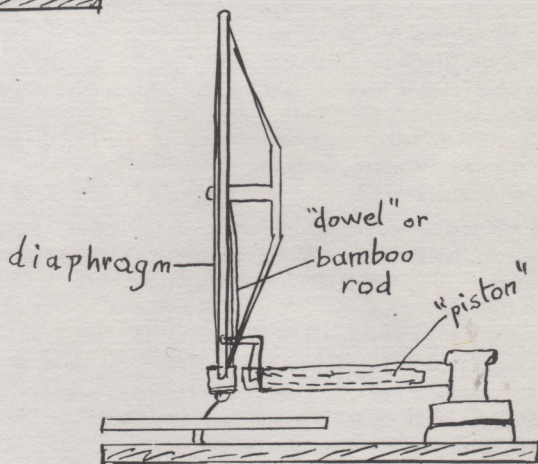 diaphragm
"dowel" or
bamboo
rod
"piston"